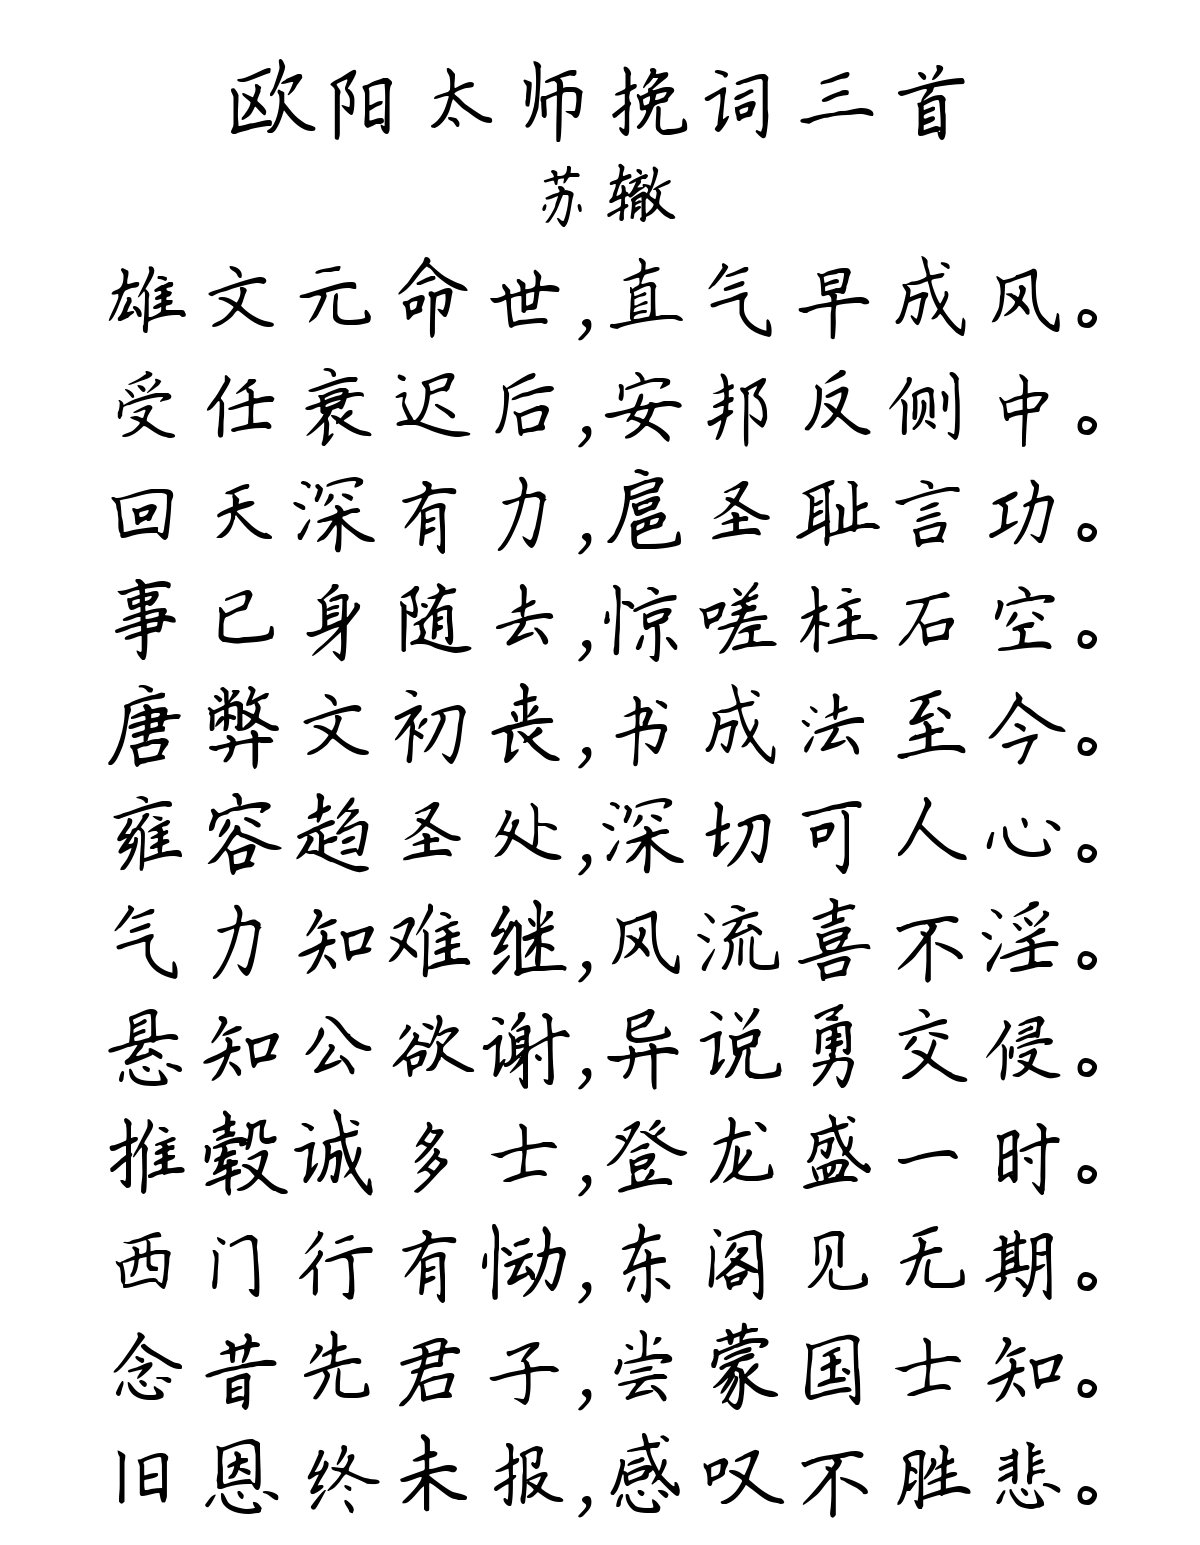 欧阳太师挽词三首
苏辙
雄文元命世,直气早成风。
受任衰迟后,安邦反侧中。
回天深有力,扈圣耻言功。
事已身随去,惊嗟柱石空。
唐弊文初丧,书成法至今。
雍容趋圣处,深切可人心。
气力知难继,风流喜不淫。
悬知公欲谢,异说勇交侵。
推毂诚多士,登龙盛一时。
西门行有恸,东阁见无期。
念昔先君子,尝蒙国士知。
旧恩终未报,感叹不胜悲。